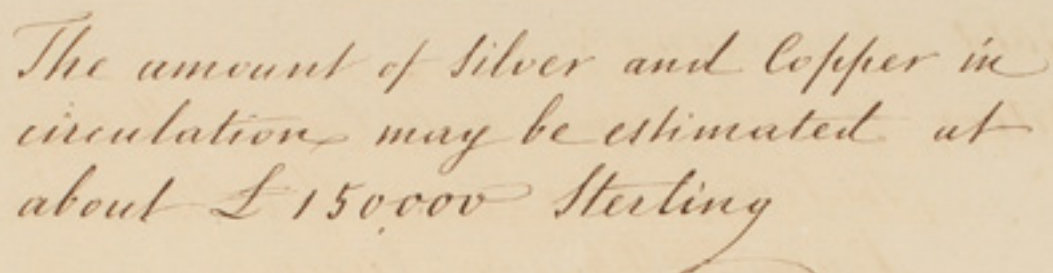 The amount of Silver and Copper in
circulation may be estimated at
about £150,000 Sterling